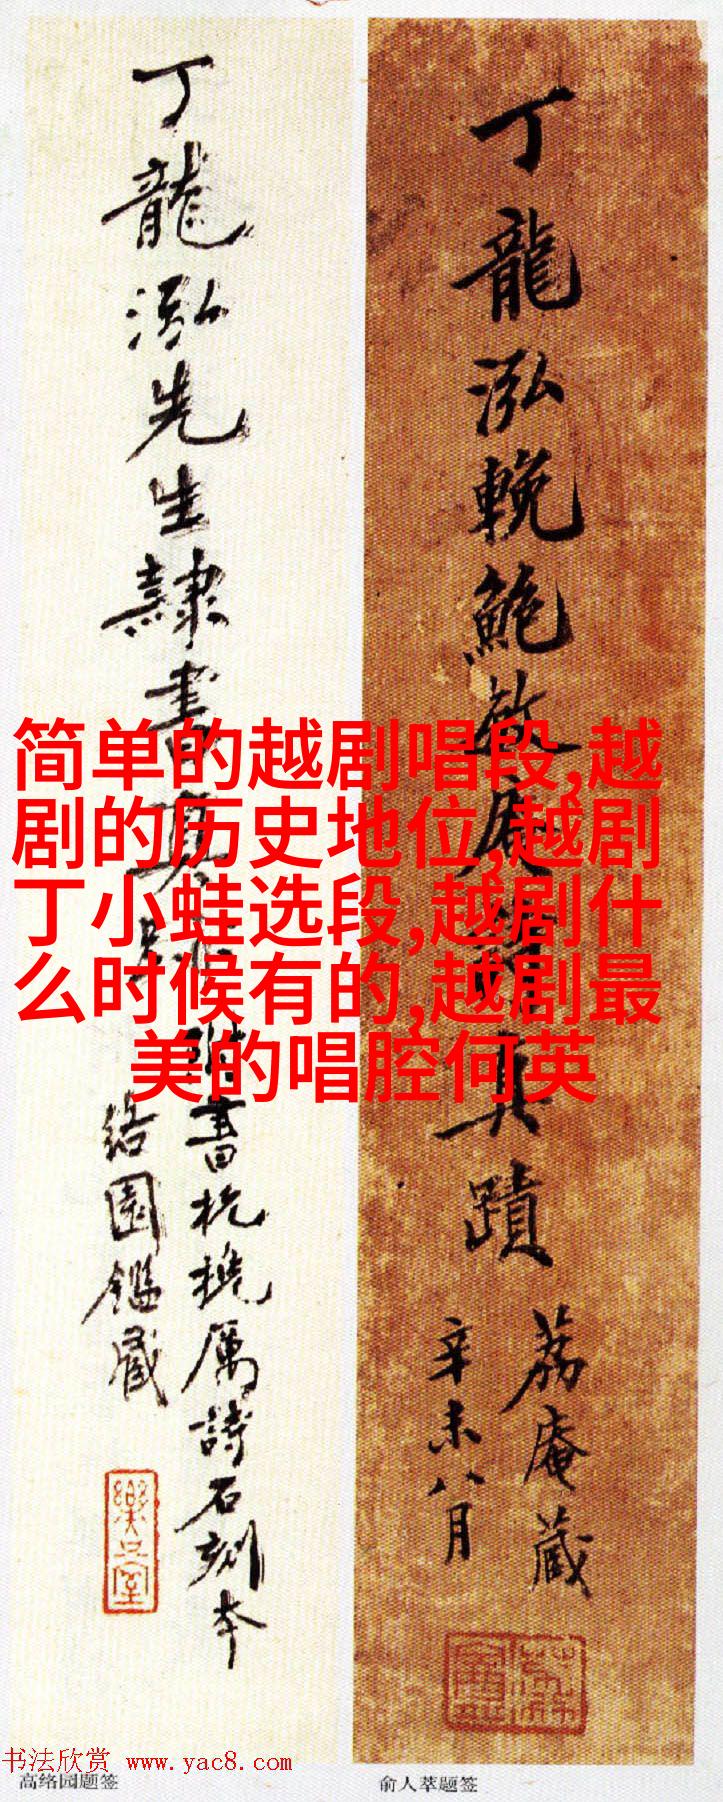 简单的越剧唱段,越
剧的历史地位,越剧
丁小蛙选段,越剧什
么时候有的,越剧最
美的唱腔何英
丁龍泓輓鮑敬庵詩真蹟
荔庵藏
辛未八月
丁龍泓先生隸書真
書杭厲詩石刻本
絡園鑑藏
樂只室
书法欣赏 www.yac8.com
高络园题签
俞人萃题签